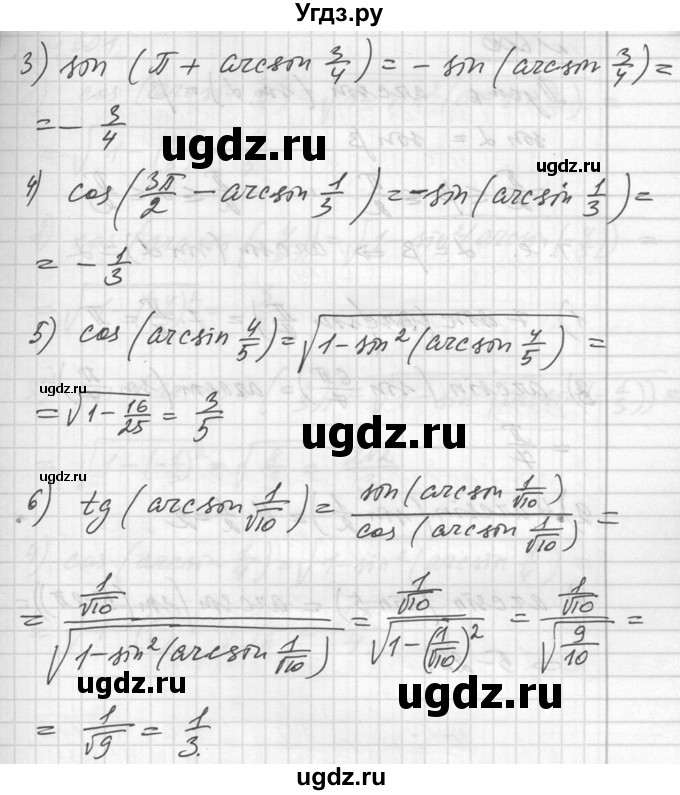 Угдз.ру
3) sin (π + arcsin 3/4) = - sin (arcsin 3/4) =
= - 3/4
ugdz.ru
ugdz.ru
4) cos (3π/2 - arcsin 1/3) = - sin (arcsin 1/3) =
= - 1/3
5) cos (arcsin 4/5) = √(1 - sin² (arcsin 4/5)) =
ugdz.ru
= √(1 - 16/25) = 3/5
ugdz.ru
ugdz.ru
6) tg (arcsin 1/√10) = sin (arcsin 1/√10) / cos (arcsin 1/√10) =
= (1/√10) / √(1 - sin² (arcsin 1/√10)) = (1/√10) / √(1 - (1/√10)²) = (1/√10) / √(9/10) =
ugdz.ru
ugdz.ru
= 1/√9 = 1/3.
ugdz.ru